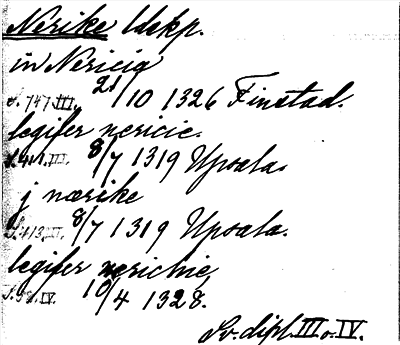 Nerike ldskp.
in Nericia
S. 747 III. 21/10 1326 Finstad.
legifer nericie.
S. 411. III. 8/7 1319 Upsala.
j nærike
S. 413. III. 8/7 1319 Upsala.
legifer nerichie
S. 98. IV. 10/4 1328.
Sv. dipl. III o. IV.